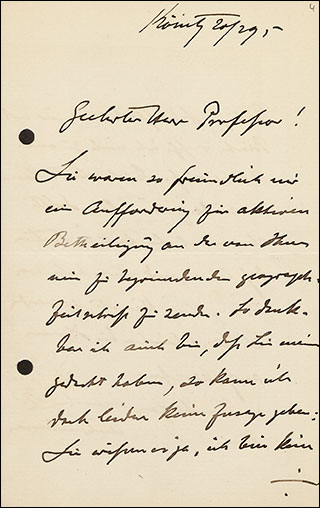 4
Köniz 20/29,-
Geehrter Herr Professor!
Sie waren so freundlich mir
ein Aufforderung für aktiven
Betheiligung an der von Ihnen
zu begründenden geograph.
Zeitschrift zu senden. So dank-
bar ich auch bin, daß Sie mein
gedacht haben, so kann ich
doch leider keine Zusage geben:
Sie wissen es ja, ich bin kein